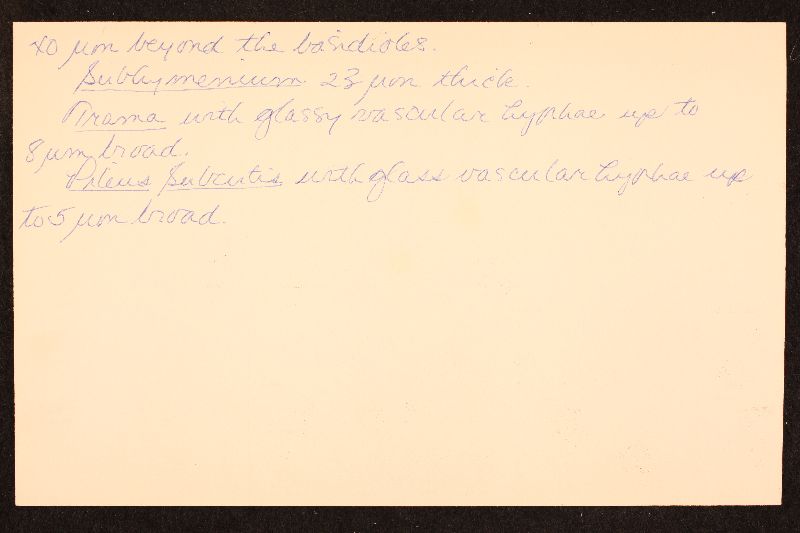 40 µm beyond the basidioles.
Subhymenium 23 µm thick.
Trama with glassy vascular hyphae up to
8 µm broad.
Pileus Subcutis with glass vascular hyphae up
to 5 µm broad.